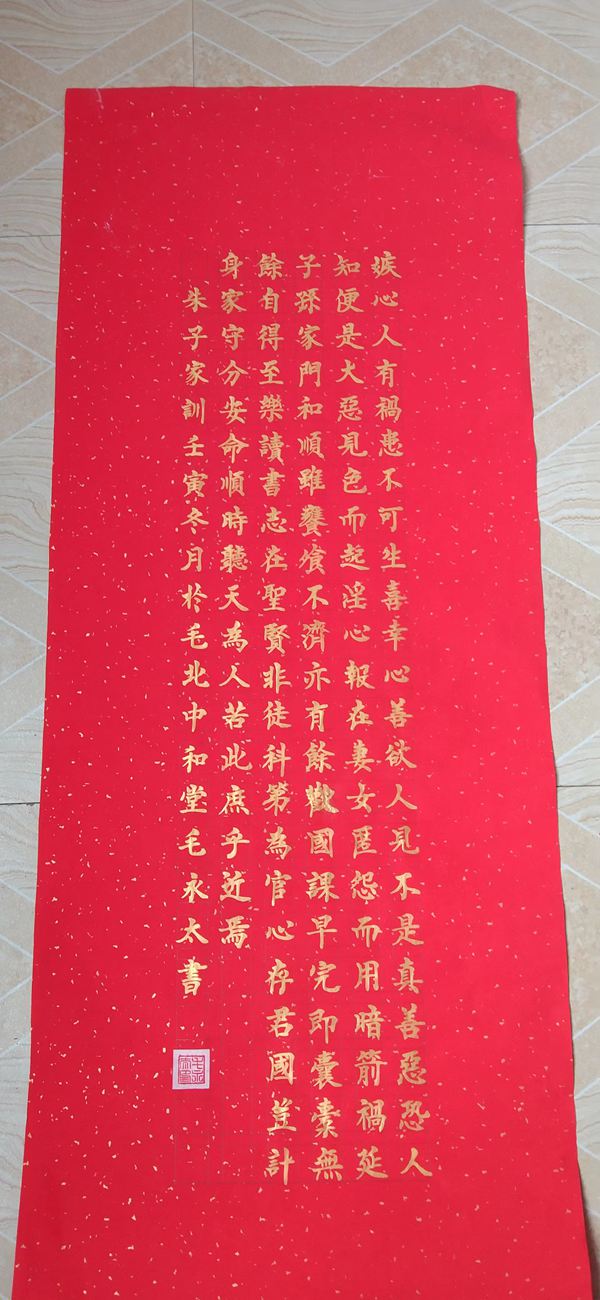 嫉心人有禍患不可生喜幸心善欲人見不是真善惡恐人
知便是大惡見色而起淫心報在妻女匿怨而用暗箭禍延
子孫家門和順雖饔飧不濟亦有餘歡國課早完即囊橐無
餘自得至樂讀書志在聖賢非徒科第為官心存君國豈計
身家守分安命順時聽天為人若此庶乎近焉
朱子家訓壬寅冬月於毛北中和堂毛永太書